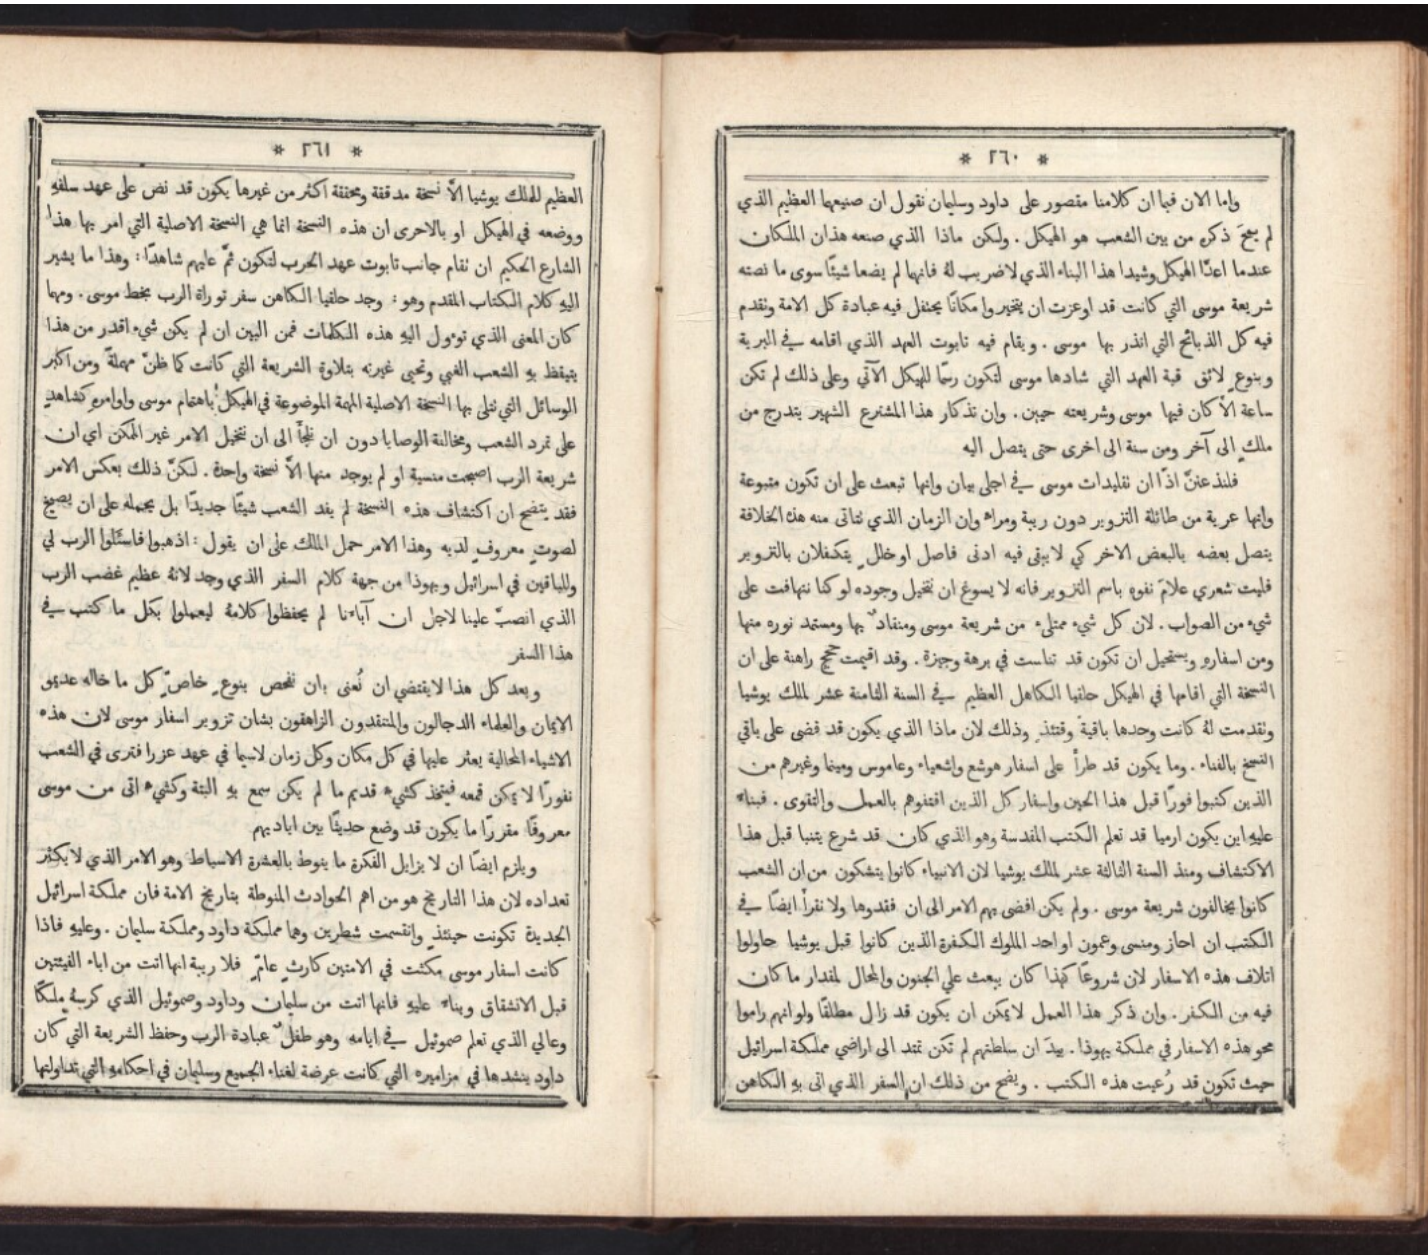 * ٢٦٠ *
واما الان فبما ان كلامنا مقصور على داود وسليمان نقول ان صنيعهما العظيم الذي
لم يمحَ ذكره من بين الشعب هو الهيكل . ولكن ماذا الذي صنعه هذان الملكان
عندما اعدّا الهيكل وشيدا هذا البناء الذي لا ضريب لهُ فانهما لم يضعا شيئًا سوى ما نصته
شريعة موسى التي كانت قد اوعزت ان يتخيروا مكانًا يحتفل فيه عبادة كل الامة ونقدم
فيه كل الذبائح التي انذر بها موسى . ويقام فيه تابوت العهد الذي اقامه في البرية
وبنوعٍ لائق قبة العهد التي شادها موسى لتكون رسمًا للهيكل الآتي وعلى ذلك لم تكن
ساعة الأ كان فيها موسى وشريعته حيين . وان تذكار هذا المشترع الشهير يتدرج من
ملكٍ الى آخر ومن سنة الى اخرى حتى يتصل اليه
فلنذعننّ اذًا ان تقليدات موسى في اجلى بيان وانها تبعث على ان تكون متبوعة
وانها عرية من طائلة التزوير دون ريبة ومراه وان الزمان الذي نتاتى منه هذه الخلافة
يتصل بعضه بالبعض الاخر كي لا يبقى فيه ادنى فاصل او خللٍ يتكفلان بالتزوير
فليت شعري علامَ نفوه باسم التزوير فانه لا يسوغ ان نتخيل وجوده لو كنا نتهافت على
شيء من الصواب . لان كل شيء ممتلىء من شريعة موسى ومنقادٌ بها ومستمد نوره منها
ومن اسفاره ويستحيل ان تكون قد تناست في برهة وجيزة . وقد اقيمت حججٌ راهنة على ان
النسخة التي اقامها في الهيكل حلقيا الكاهل العظيم في السنة الثامنة عشر لملك يوشيا
ونقدمت لهُ كانت وحدها باقية وقتئذٍ وذلك لان ماذا الذي يكون قد قضى على باقي
النسخ بالفناء . وما يكون قد طرأ على اسفار هوشع واشعياء وعاموس وميمنا وغيرهم من
الذين كتبوا فورًا قبل هذا الحين واسفار كل الذين اقتفوهم بالعمل والتقوى . فبناء
عليهِ اين يكون ارميا قد تعلم الكتب المقدسة وهو الذي كان قد شرع يتنبا قبل هذا
الاكتشاف ومنذ السنة الثالثة عشر لملك يوشيا لان الانبياء كانوا يتشكون من ان الشعب
كانوا يخالفون شريعة موسى . ولم يكن افضى بهم الامر الى ان فقدوها ولا نقرأ ايضًا في
الكتب ان احاز ومنسى وعمون او احد الملوك الكفرة الذين كانوا قبل يوشيا حاولوا
اتلاف هذه الاسفار لان شروعًا كهذا كان يبعث على الجنون والمحال لمقدار ما كان
فيه من الكفر . وان ذكر هذا العمل لا يمكن ان يكون قد زال مطلقًا ولو انهم راموا
محو هذه الاسفار في مملكة يهوذا . بيدَ ان سلطتهم لم تكن تمتد الى اراضي مملكة اسرائيل
حيث تكون قد رُعيت هذه الكتب . ويضح من ذلك ان السفر الذي اتى بهِ الكاهن
* ٢٦١ *
العظيم للملك يوشيا الاّ نسخة مدققة ومحققة اكثر من غيرها يكون قد نص على عهد سلفهِ
ووضعه في الهيكل او بالاحرى ان هذه النسخة انما هي النسخة الاصلية التي امر بها هذا
الشارع الحكيم ان تقام جانب تابوت عهد الحرب لتكون ثمّ عليهم شاهدًا: وهذا ما يشير
اليهِ كلام الكتاب المقدم وهو : وجد حلقيا الكاهن سفر توراة الرب بخط موسى . ومهما
كان المعنى الذي توءول اليه هذه الكلمات فمن البين ان لم يكن شيء اقدر من هذا
يتيقظ بهِ الشعب الغبي وتحيى غيرته بتلاوة الشريعة التي كانت كما ظنّ مهملةً ومن اكبر
الوسائل التي نتلى بها النسخة الاصلية المهمة الموضوعة في الهيكل باهتمام موسى واوامره كشاهدٍ
على تمرد الشعب ومخالفة الوصايا دون ان نلجأ الى ان نتخيل الامر غير الممكن اي ان
شريعة الرب اصبحت منسية او لم يوجد منها الاّ نسخة واحدة . لكنّ ذلك بعكس الامر
فقد يتضح ان اكتشاف هذه النسخة لم يفد الشعب شيئًا جديدًا بل يحمله على ان يصيخ
لصوتٍ معروفٍ لديه وهذا الامر حمل الملك على ان يقول : اذهبوا فاسئلوا الرب لي
وللباقين في اسرائيل ويهوذا من جهة كلام السفر الذي وجد لانهُ عظيم غضب الرب
الذي انصبّ علينا لاجل ان آباءنا لم يحفظوا كلامهُ ليعملوا بكل ما كتب في
هذا السفر
وبعد كل هذا لا يقتضي ان نُعنى بان نفحص بنوعٍ خاصٍّ كل ما خاله عديمو
الايمان والعلماء الدجالون والمنتقدون الزاهقون بشان تزوير اسفار موسى لان هذه
الاشياء المحالية يعثر عليها في كل مكان وكل زمان لاسيما في عهد عزرا فترى في الشعب
نفورًا لا يمكن قمعه فيتخذ كشيء قديم ما لم يكن سمع بهِ البتة وكشيء اتى من موسى
معروفًا مقررًا ما يكون قد وضع حديثًا بين اياديهم
ويلزم ايضًا ان لا يزايل الفكرة ما ينوط بالعشرة الاسباط وهو الامر الذي لا يكثر
تعداده لان هذا التاريخ هو من اهم الحوادث المنوطة بتاريخ الامة فان مملكة اسرائيل
الجديدة تكونت حينئذٍ وانقسمت شطرين وهما مملكة داود ومملكة سليمان . وعليهِ فاذا
كانت اسفار موسى مكثت في الامتين كارثٍ عامٍّ فلا ريبة انها اتت من اباء الفيئتين
قبل الانشقاق وبناء عليهِ فانها اتت من سليمان وداود وصموئيل الذي كرسهُ ملكًا
وعالي الذي تعلم صموئيل في ايامه وهو طفلٌ عبادة الرب وحفظ الشريعة التي كان
داود ينشدها في مزاميره التي كانت عرضة لغناء الجميع وسليمان في احكامهِ التي تداولتها